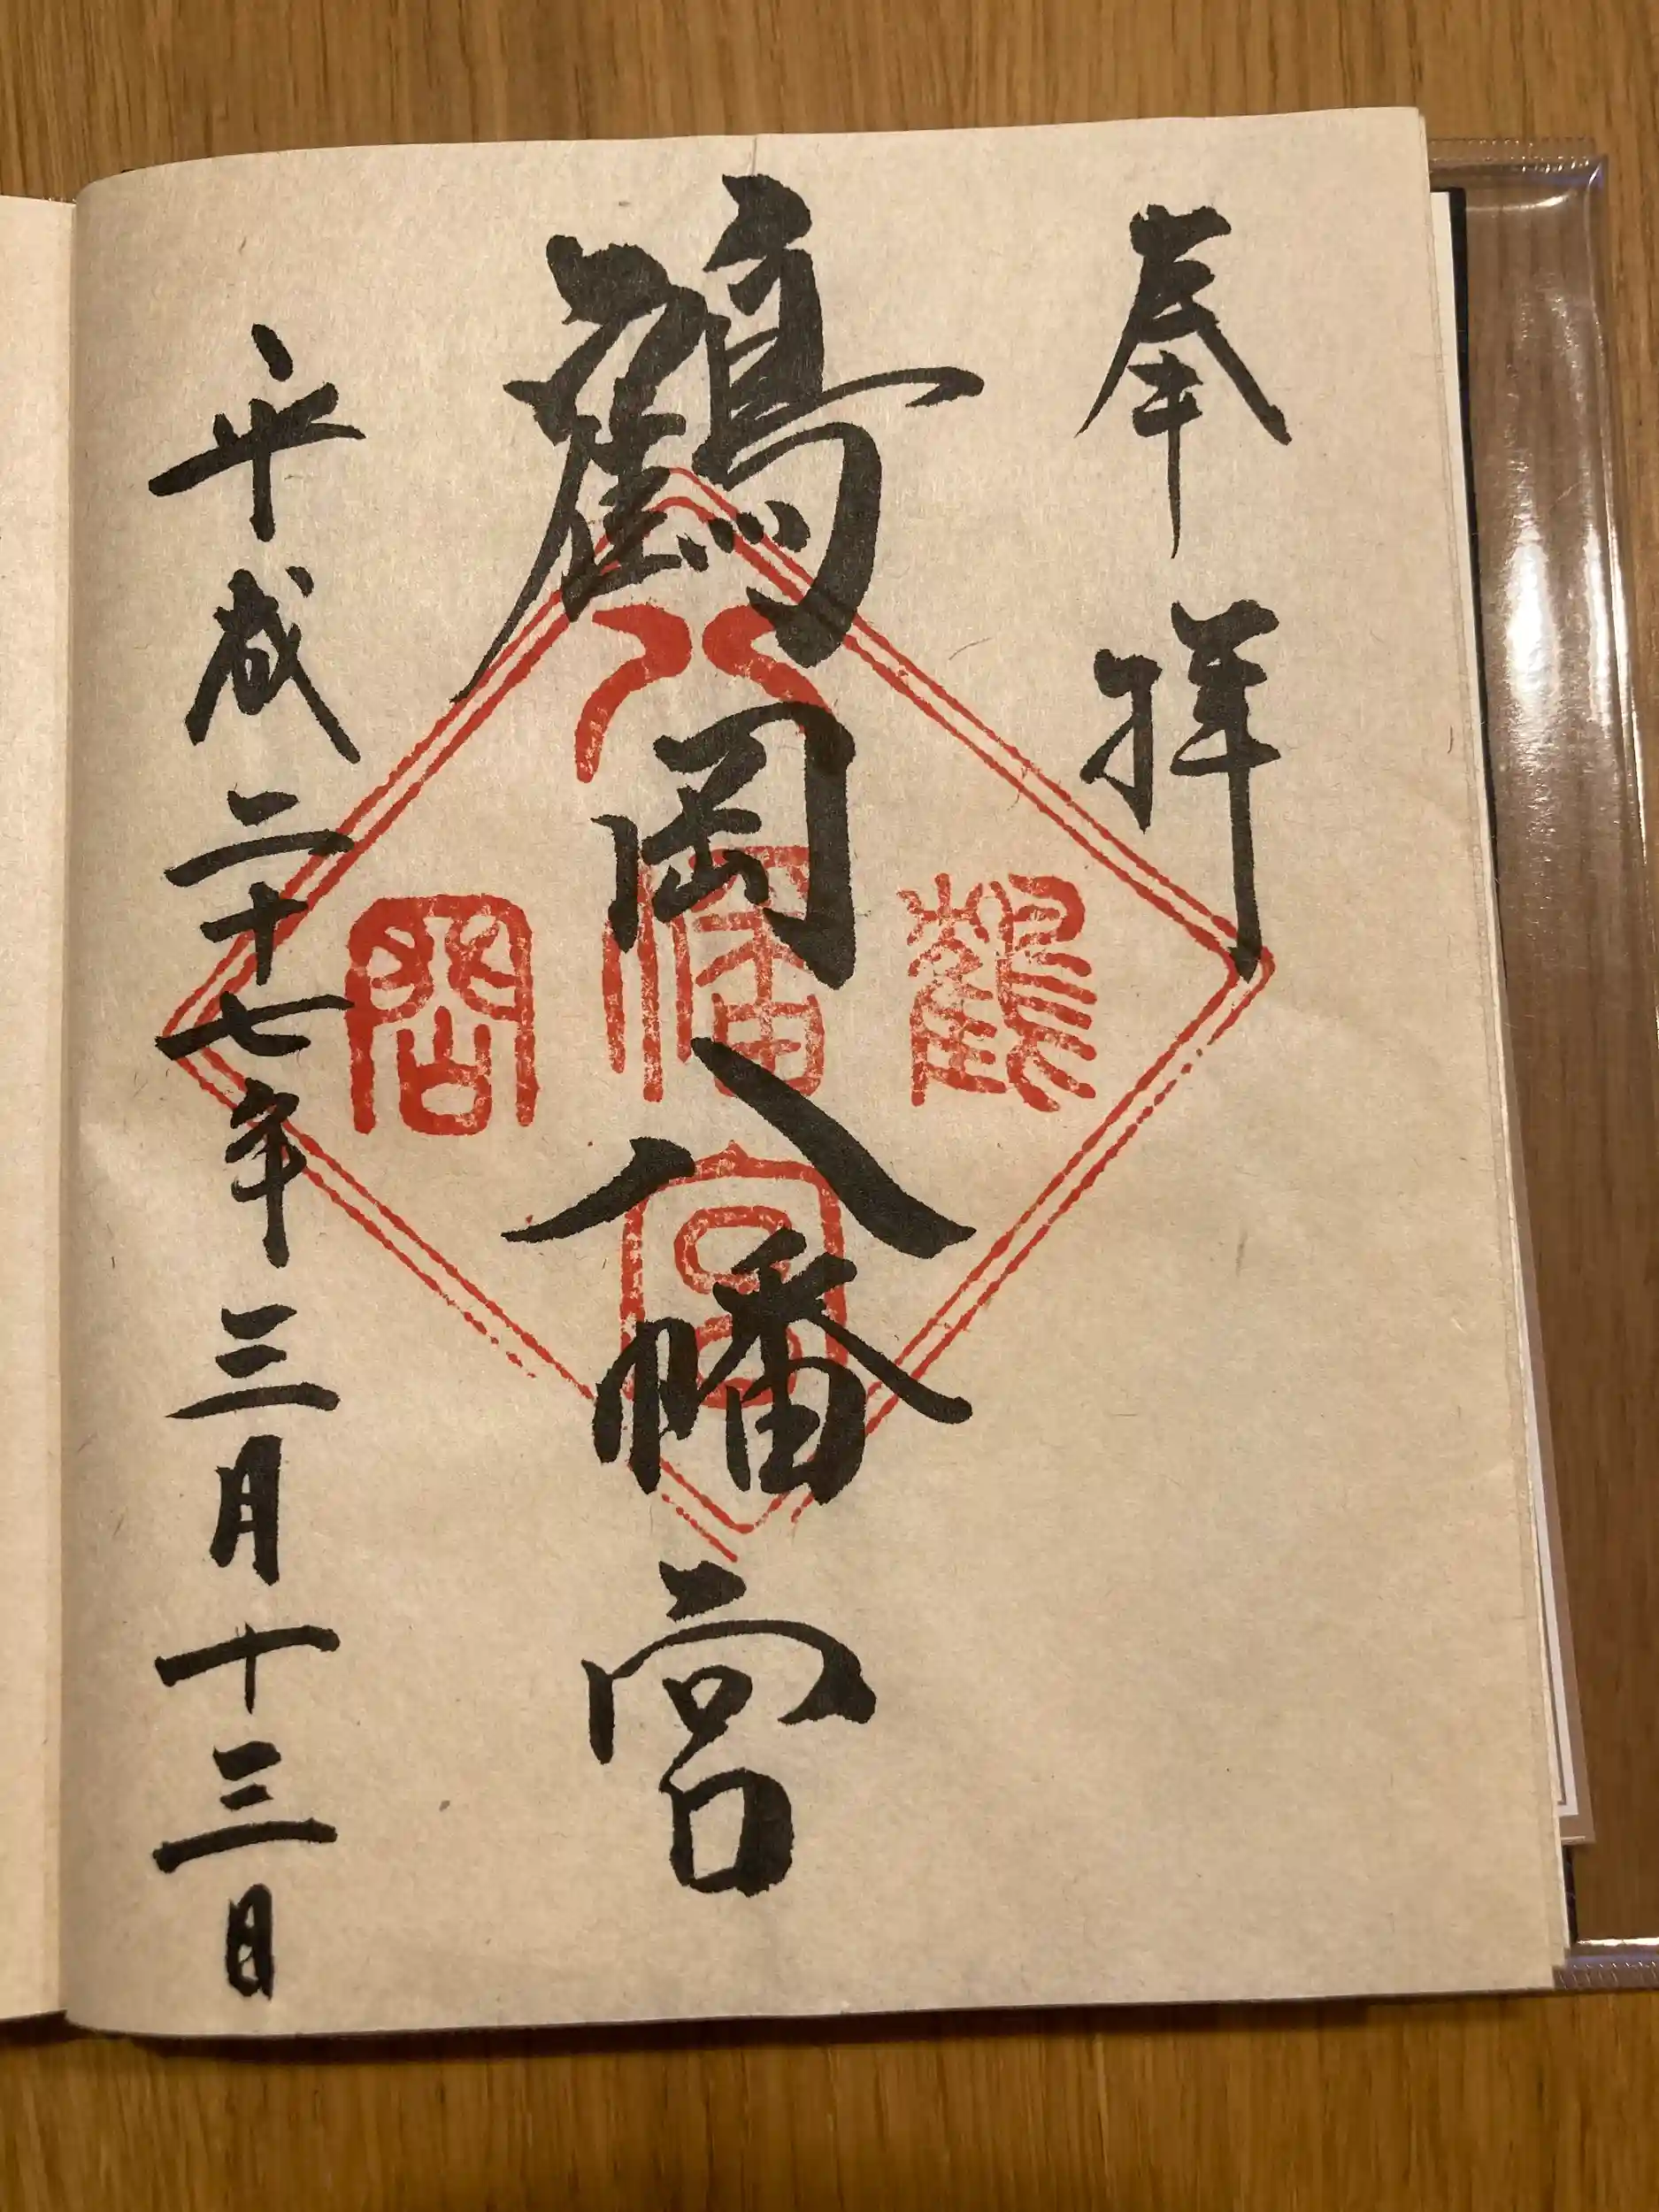 奉拝
鶴岡八幡宮
八幡宮
鶴
岡
平成二十七年三月十三日